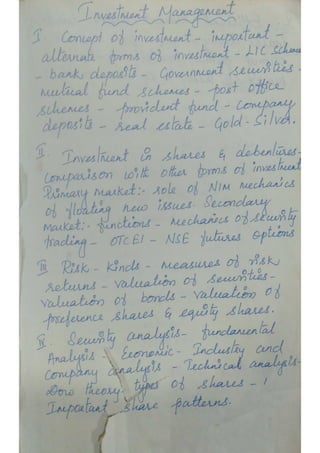 Investment Management
I Concept of investment - important -
alternate forms of investment - LIC schemes
- bank deposits - Government securities -
mutual fund schemes - post office
schemes - provident fund - company
deposits - real estate - Gold - Silver.
II. Investment in shares & debentures -
comparison with other forms of investment
Primary market:- role of NIM mechanics
of floating new issues. Secondary
market:- functions - mechanics of security
trading - OTCEI - NSE futures options
III Risk - Kinds - measures of risk
returns - valuation of securities -
valuation of bonds - valuation of
preference shares & equity shares.
Security analysis - fundamental
Analysis - Economic - Industry and
company analysis - Technical analysis -
Dow theory - types of shares -
Important share patterns.